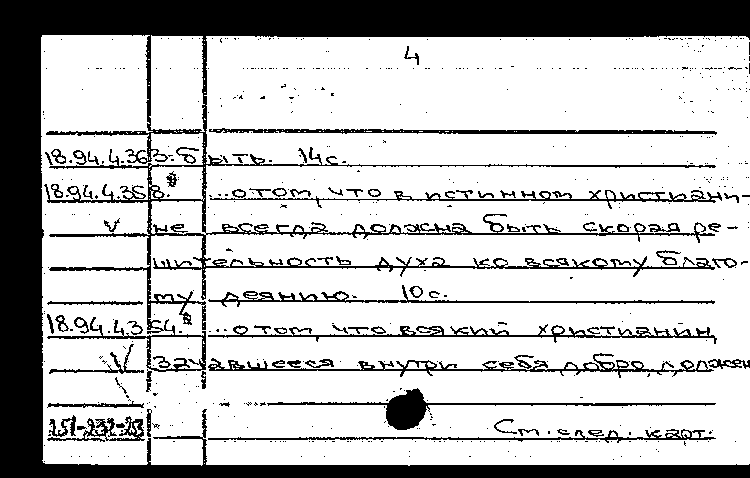 4
18.94.4.363. быть. 14с.
18.94.4.368. ...о том, что в истинном христиани-
не всегда должна быть скорая ре-
шительность духа ко всякому благо-
му деянию. 10с.
18.94.4.364. ...о том, что всякий христианин,
зачавшееся внутри себя добро, должен
251-232-23
См. след. карт.